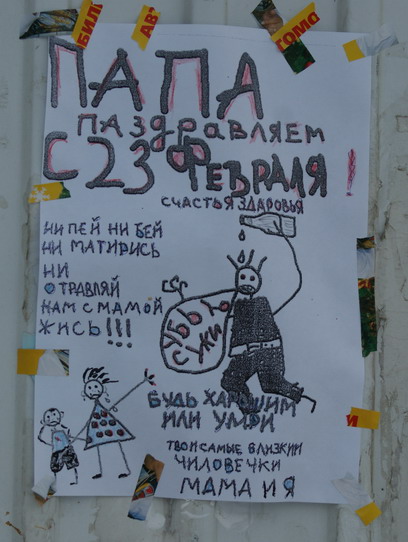 ПАПА
ПАЗДРАВЛЯЕМ
С 23 ФЕВРАЛЯ!
СЧАСТЬЯ ЗДАРОВЬЯ
НИ ПЕЙ НИ БЕЙ
НИ МАТИРИСЬ
НИ
ОТРАВЛЯЙ
НАМ С МАМОЙ
ЖИСЬ!!!
БУДЬ ХАРОШИМ
ИЛИ УМРИ
ТВОИ САМЫЕ БЛИЗКИИ
ЧИЛОВЕЧКИ
МАМА И Я